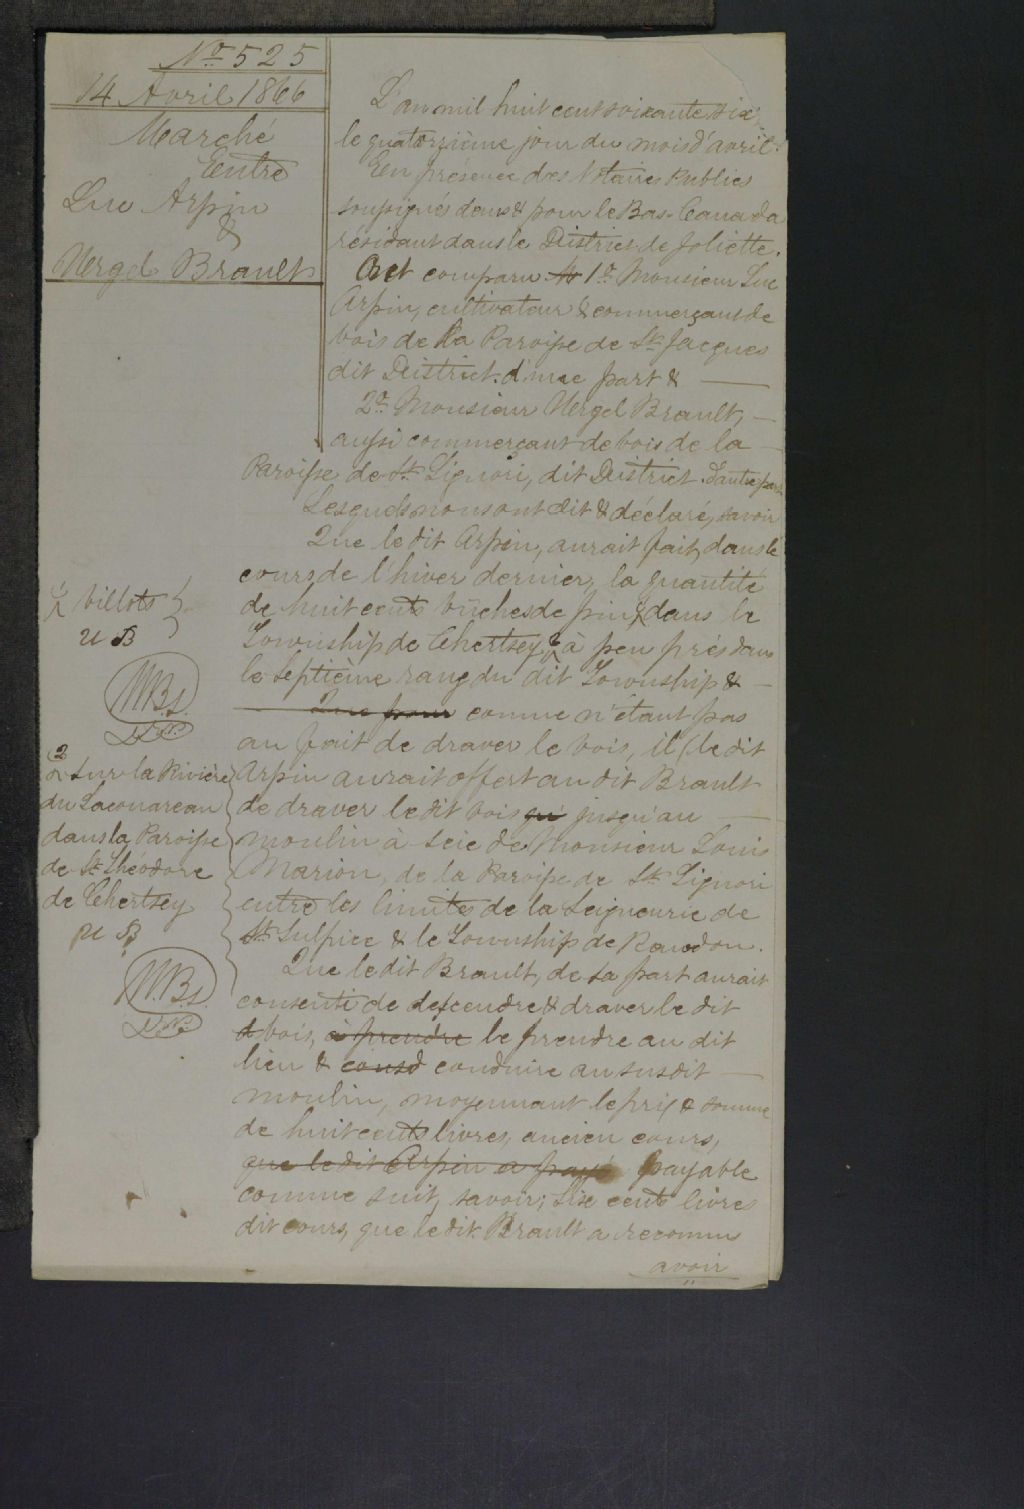 No 525
14 Avril 1866
Marché
Entre
Luc Arpin
&
Uergel Brault
L'an mil huit cent soixante six
le quatorzième jour du mois d'avril.
En présence des Notaires Publics
soussignés dans & pour le Bas-Canada
résidant dans le District de Joliette.
Ont comparu 1o Monsieur Luc
Arpin, cultivateur & commerçant de
bois de la Paroisse de St Jacques
dit District d'une part &
2o Monsieur Uergel Brault,
aussi commerçant de bois de la
Paroisse de St Liguori, dit District d'autre part
Lesquels nous ont dit & déclaré, savoir
Que le dit Arpin, aurait fait, dans le
cours de l'hiver dernier, la quantité
de huit cents bûches de pin dans le
Township de Chertsey, à peu près dans
le septième rang du dit Township &
Que pour comme n'étant pas
au fait de draver le bois, il (le dit
Arpin aurait offert au dit Brault
de draver le dit bois qu' jusqu'au
moulin à scie de Monsieur Louis
Marion, de la Paroisse de St Liguori
entre les limites de la Seigneurie de
St Sulpice & le Township de Rawdon.
Que le dit Brault, de sa part aurait
consenti de descendre & draver le dit
bois, à prendre le prendre au dit
lieu & conduire au susdit
moulin, moyennant le prix & somme
de huit cents livres, ancien cours,
que le dit Arpin a payé payable
comme suit, savoir; Six cents livres
dit cours, que le dit Brault a reconnu
avoir
billots
U B
sur la Rivière
du Lacouareau
dans la Paroisse
de St Théodore
de Chertsey
U B